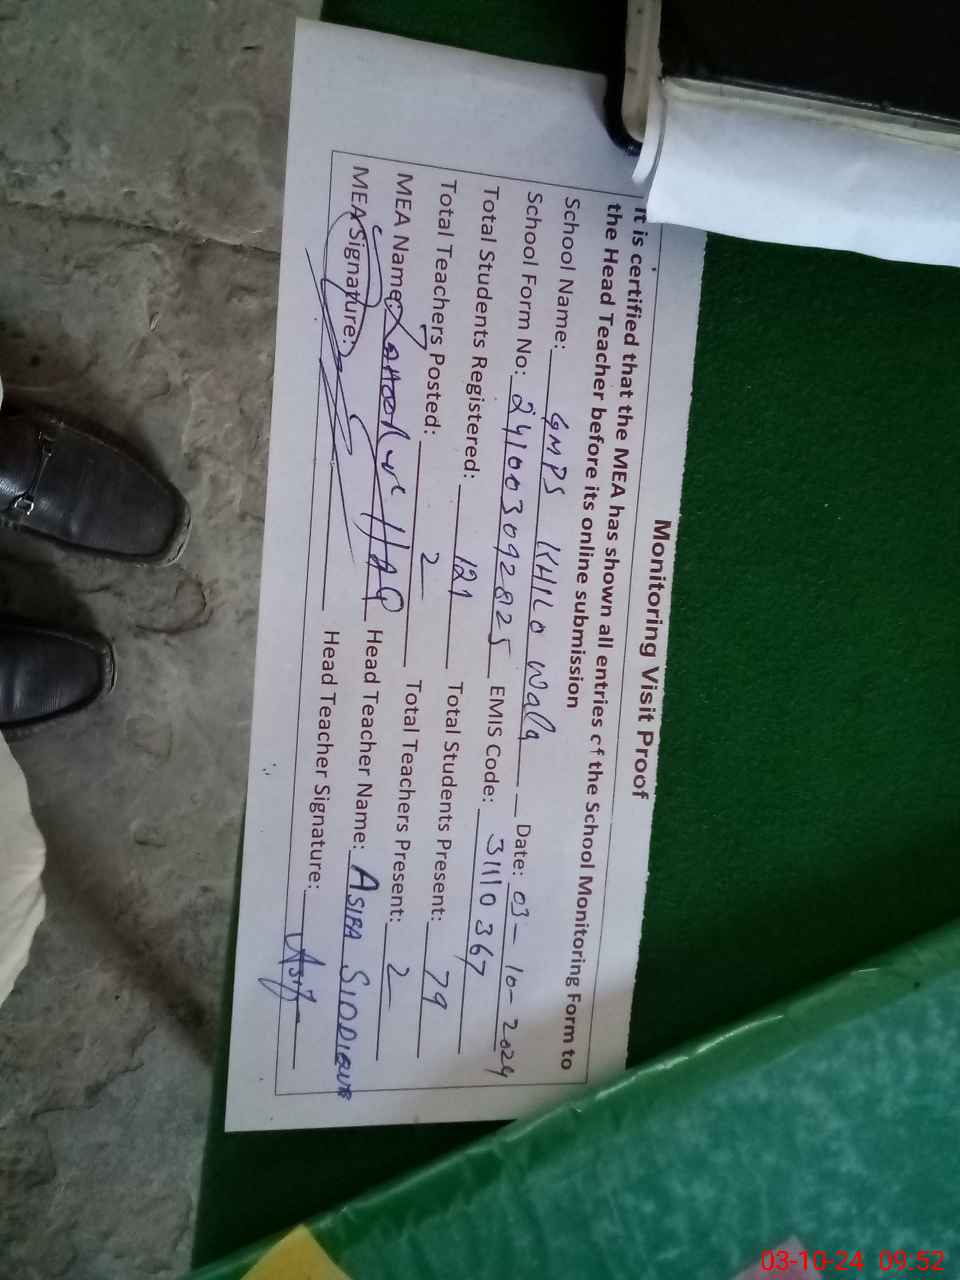 Monitoring Visit Proof
It is certified that the MEA has shown all entries of the School Monitoring Form to
the Head Teacher before its online submission
School Name: GMPS KHILO Walla Date: 03-10-2024
School Form No: 24100309 2825 EMIS Code: 31110367
Total Students Registered: 121 Total Students Present: 79
Total Teachers Posted: 2 Total Teachers Present: 2
MEA Name: HAQ Head Teacher Name: ASIFA SIDDIQUE
MEA Signature: Head Teacher Signature: Asifa
03-10-24 09:52